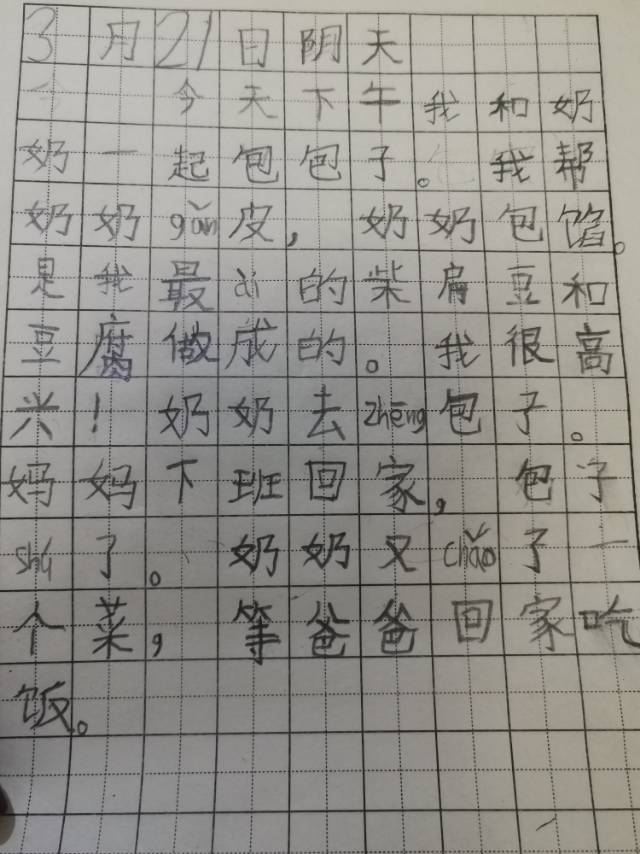 3月21日阴天
今天下午我和奶
奶一起包包子。我帮
奶奶gǎn皮，奶奶包馅。
是我最ài的柴扁豆和
豆腐做成的。我很高
兴！奶奶去zhēng包子。
妈妈下班回家，包子
shú了。奶奶又chǎo了一
个菜，等爸爸回家吃
饭。